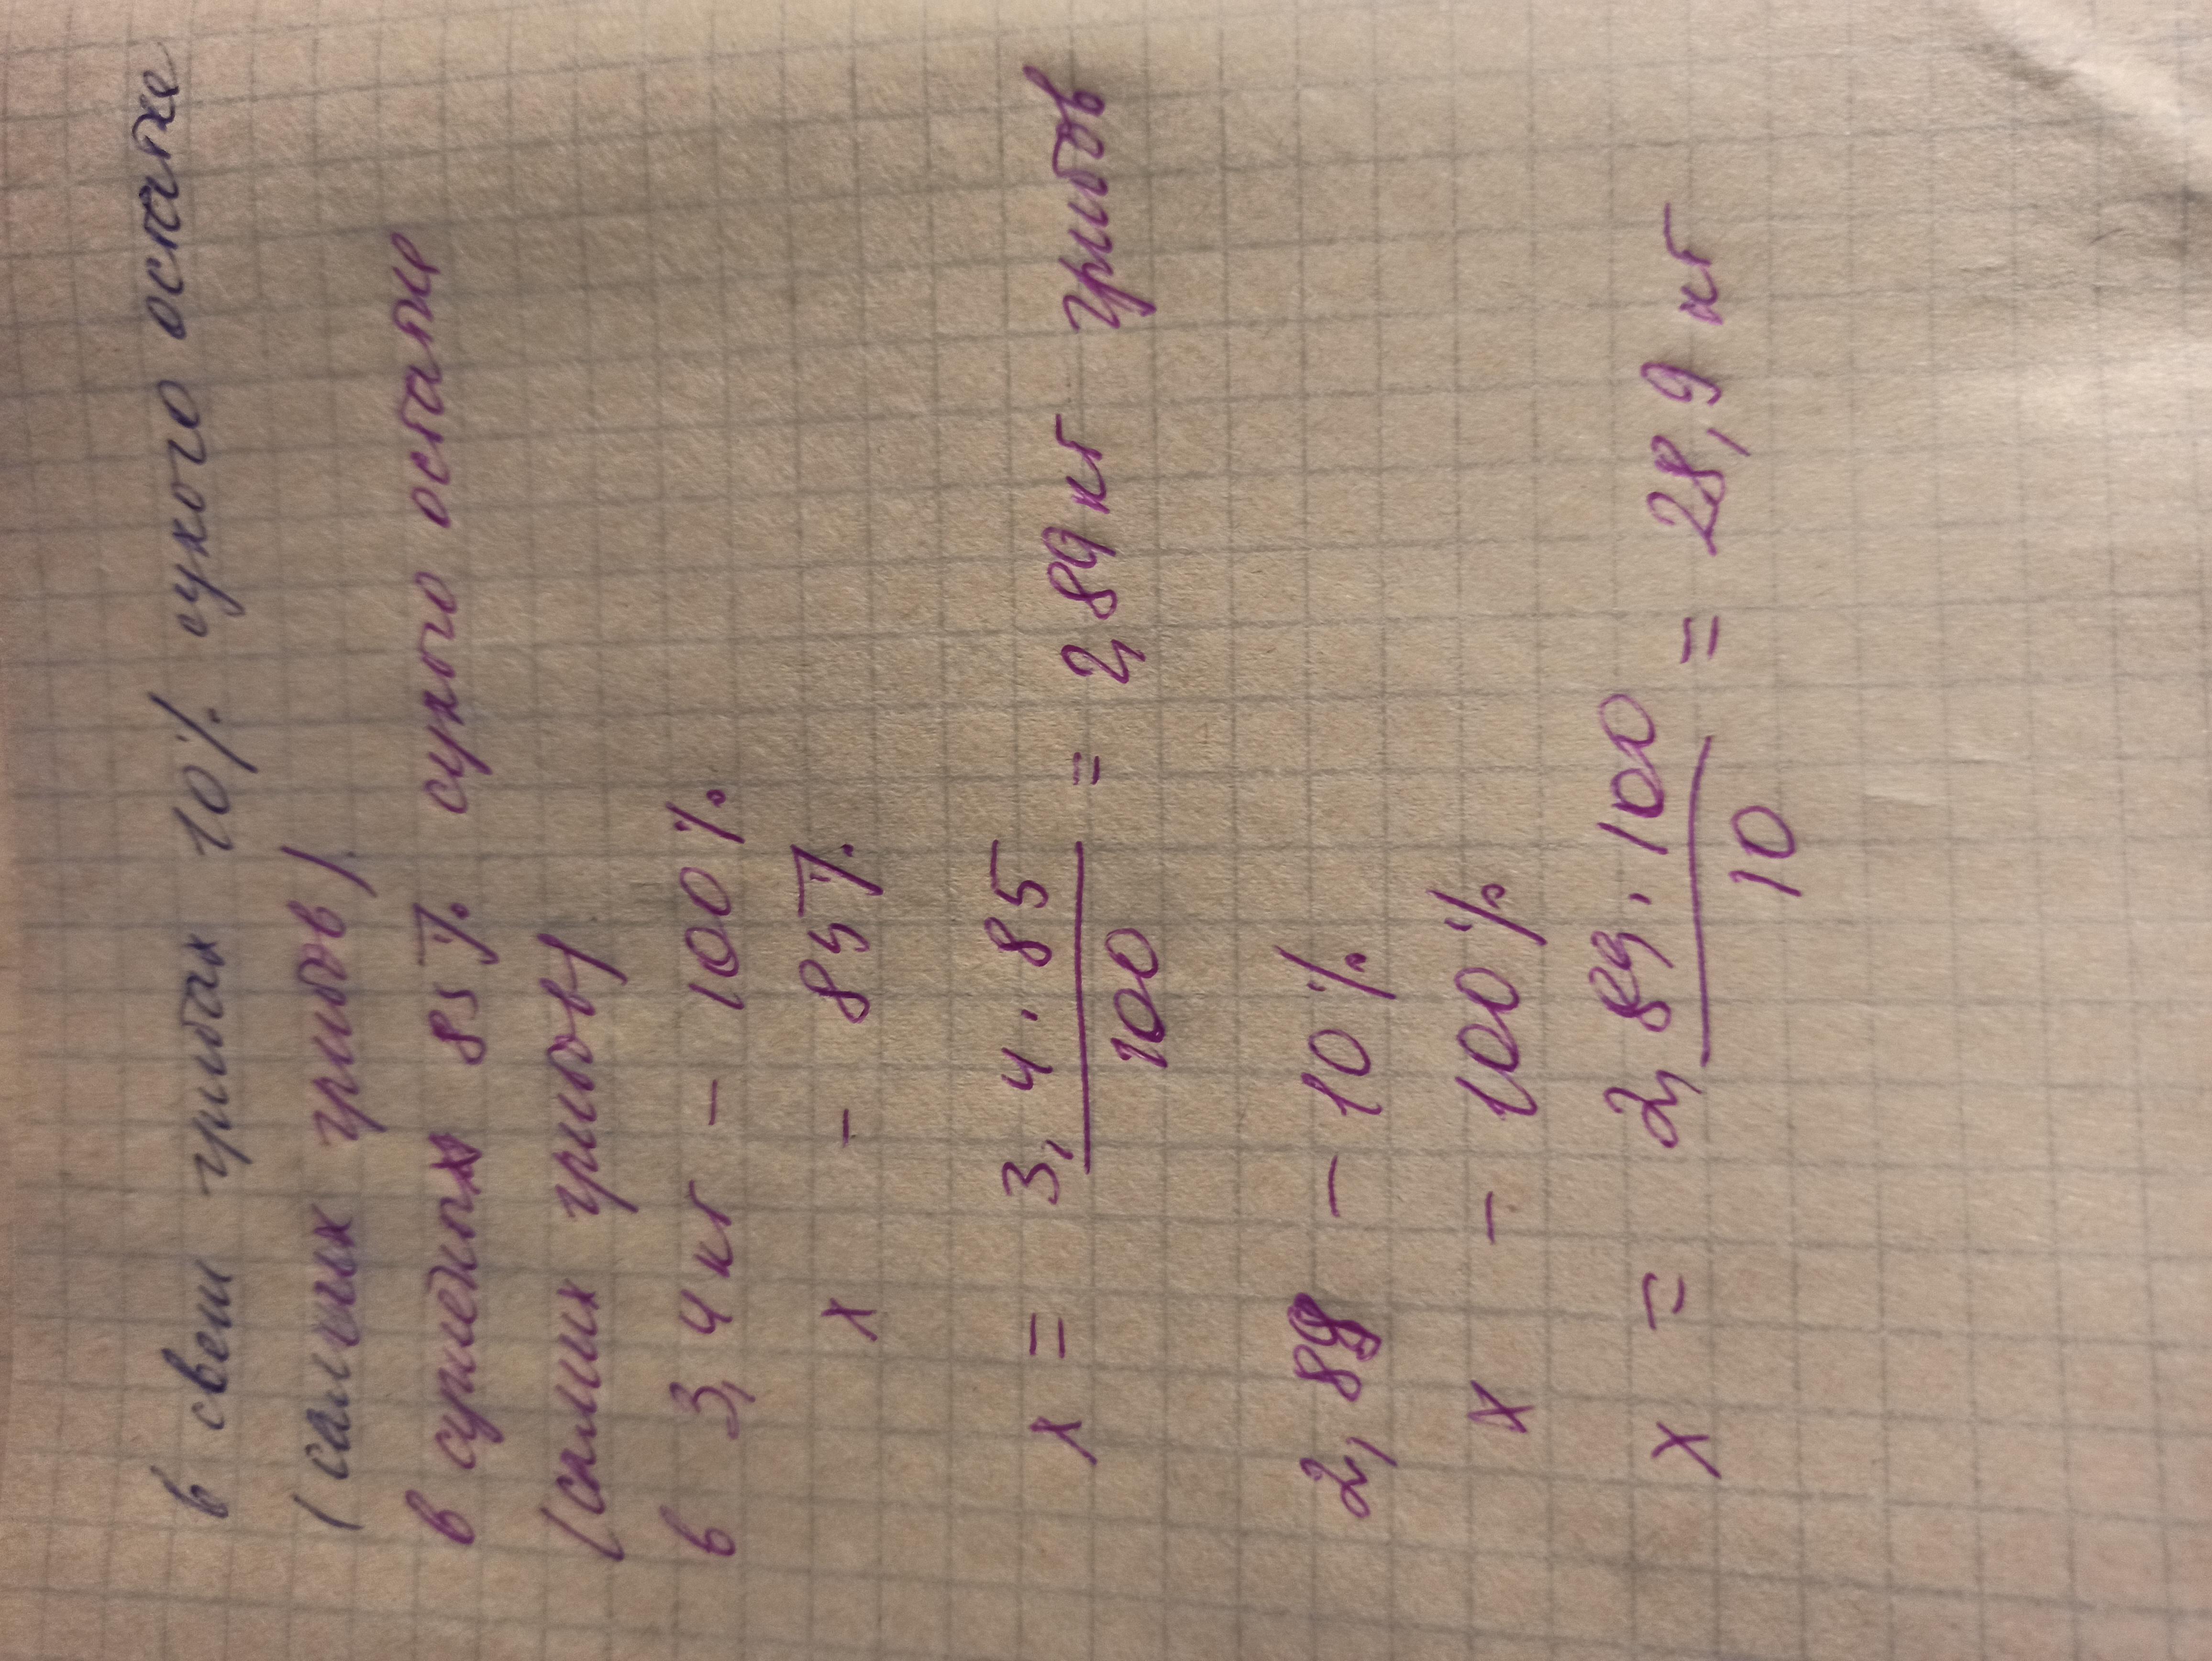 в свеш грибах 10% сухого остатка
(самих грибов)
в сушеных 85% сухого остатка
(самих грибов)
в 3,4 кг - 100%
х - 85%
х = 3,4 · 85 / 100 = 2,89 кг грибов
2,89 - 10%
х - 100%
х = 2,89 · 100 / 10 = 28,9 кг